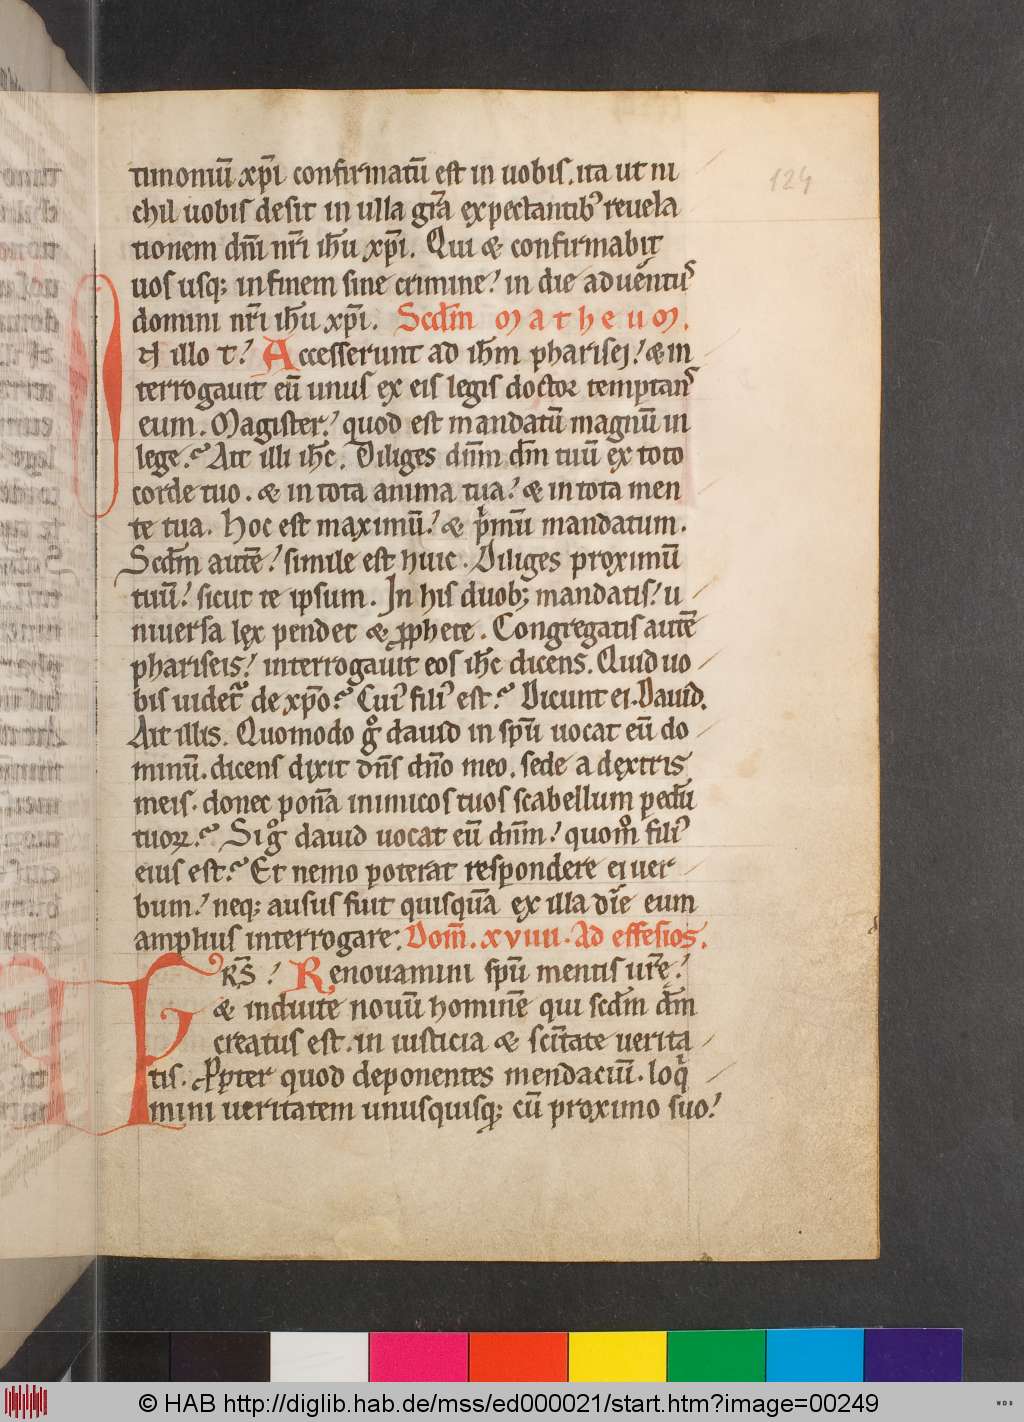 timoniū xp̄i confirmatū est in uobis. ita ut ni
chil uobis desit in ulla gr̄a expectantibꝰ reuela
tionem dn̄i nr̄i ih̄u xp̄i. Qui & confirmabit
uos usq; in finem sine crimine! in die aduentus
domini nr̄i ih̄u xp̄i. Scd̄m matheum.
IN illo t! Accesserunt ad ih̄m pharisei! & in
terrogauit eū unus ex eis legis doctor temptans
eum. Magister! quod est mandatū magnū in
lege? Ait illi ih̄c. Diliges dn̄m dm̄ tuū ex toto
corde tuo. & in tota anima tua! & in tota men
te tua. Hoc est maximū! & pͥmū mandatum.
Scd̄m autē! simile est huic. Diliges proximū
tuū! sicut te ipsum. In his duob; mandatis! u
niuersa lęx pendet & ꝓphete. Congregatis autē
phariseis! interrogauit eos ih̄c dicens. Quid uo
bis uidet᷑ de xp̄o? Cuiꝰ filiꝰ est? Dicunt ei. Dauid.
Ait illis. Quomodo gͦ dauid in sp̄u uocat eū do
minū. dicens dixit dn̄s dn̄o meo. sede a dęxtris
meis. donec ponā inimicos tuos scabellum pedū
tuoꝝ? Si gͦ dauid uocat eū dn̄m! quom̊ filiꝰ
eius est? Et nemo poterat respondere ei uer
bum! neq; ausus fuit quisquā ex illa die eum
amplius interrogare. Dom̄. xviiii. Ad effesios.
FRS̄! Renouamini sp̄u mentis ur̄e!
& induite nouū hominē qui scd̄m dm̄
creatus est. in iusticia & scītate uerita
tis. Ꝓpter quod deponentes mendaciū. loqͥ
mini ueritatem unusquisq; cū proximo suo!
124
© HAB http://diglib.hab.de/mss/ed000021/start.htm?image=00249